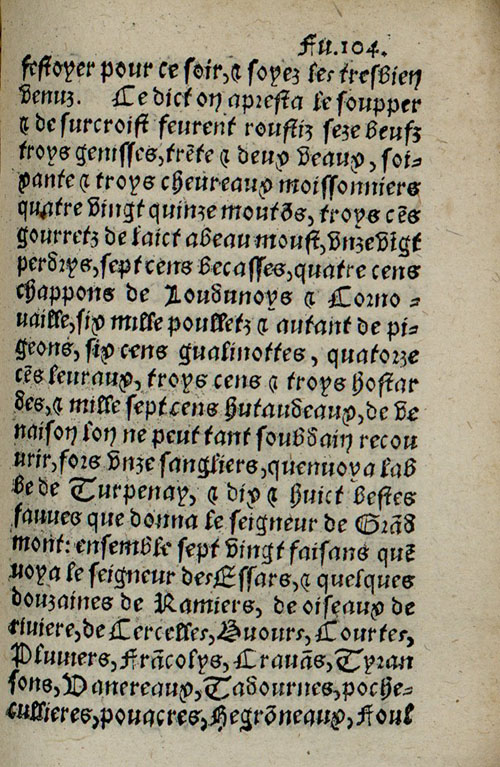 Fu.104.
festoyer pour ce soir, ⁊ soyez les tresbien
venuz. Ce dict on apresta le soupper
⁊ de surcroist feurent roustiz seze beufz
troys genisses, trẽte ⁊ deux veaux, soi-
xante ⁊ troys cheureaux moissonniers
quatre vingt quinze moutõs, troys cẽs
gourretz de laict a beau moust, vnze vĩgt
perdrys, sept cens becasses, quatre cens
chappons de Loudunoys ⁊ Corno-
uaille, six mille poulletz ⁊ autant de pi-
geons, six cens gualinottes, quatorze
cẽs leuraux, troys cens ⁊ troys hostar
des, ⁊ mille sept cens hutaudeaux, de ve
naison lon ne peut tant soubdain recou
urir, fors vnze sangliers, quenuoya lab
be de Turpenay, ⁊ dix ⁊ huict bestes
fauues que donna le seigneur de Grãd
mont: ensemble sept vingt faisans quẽ
uoya le seigneur des Essars, ⁊ quelques
douzaines de Ramiers, de oiseaux de
riuiere, de Cercelles, Buours, Courtes,
Pluuiers, Frãcolys, Crauãs, Tyran
sons, Vanereaux, Tadournes, poche-
cullieres, pouacres, Hegrõneaux, Foul